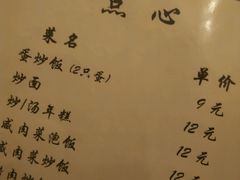 点心
菜名 单价
蛋炒饭(2只蛋) 9元
炒面 12元
炒/汤年糕 12元
咸肉菜泡饭 12元
咸肉菜炒饭